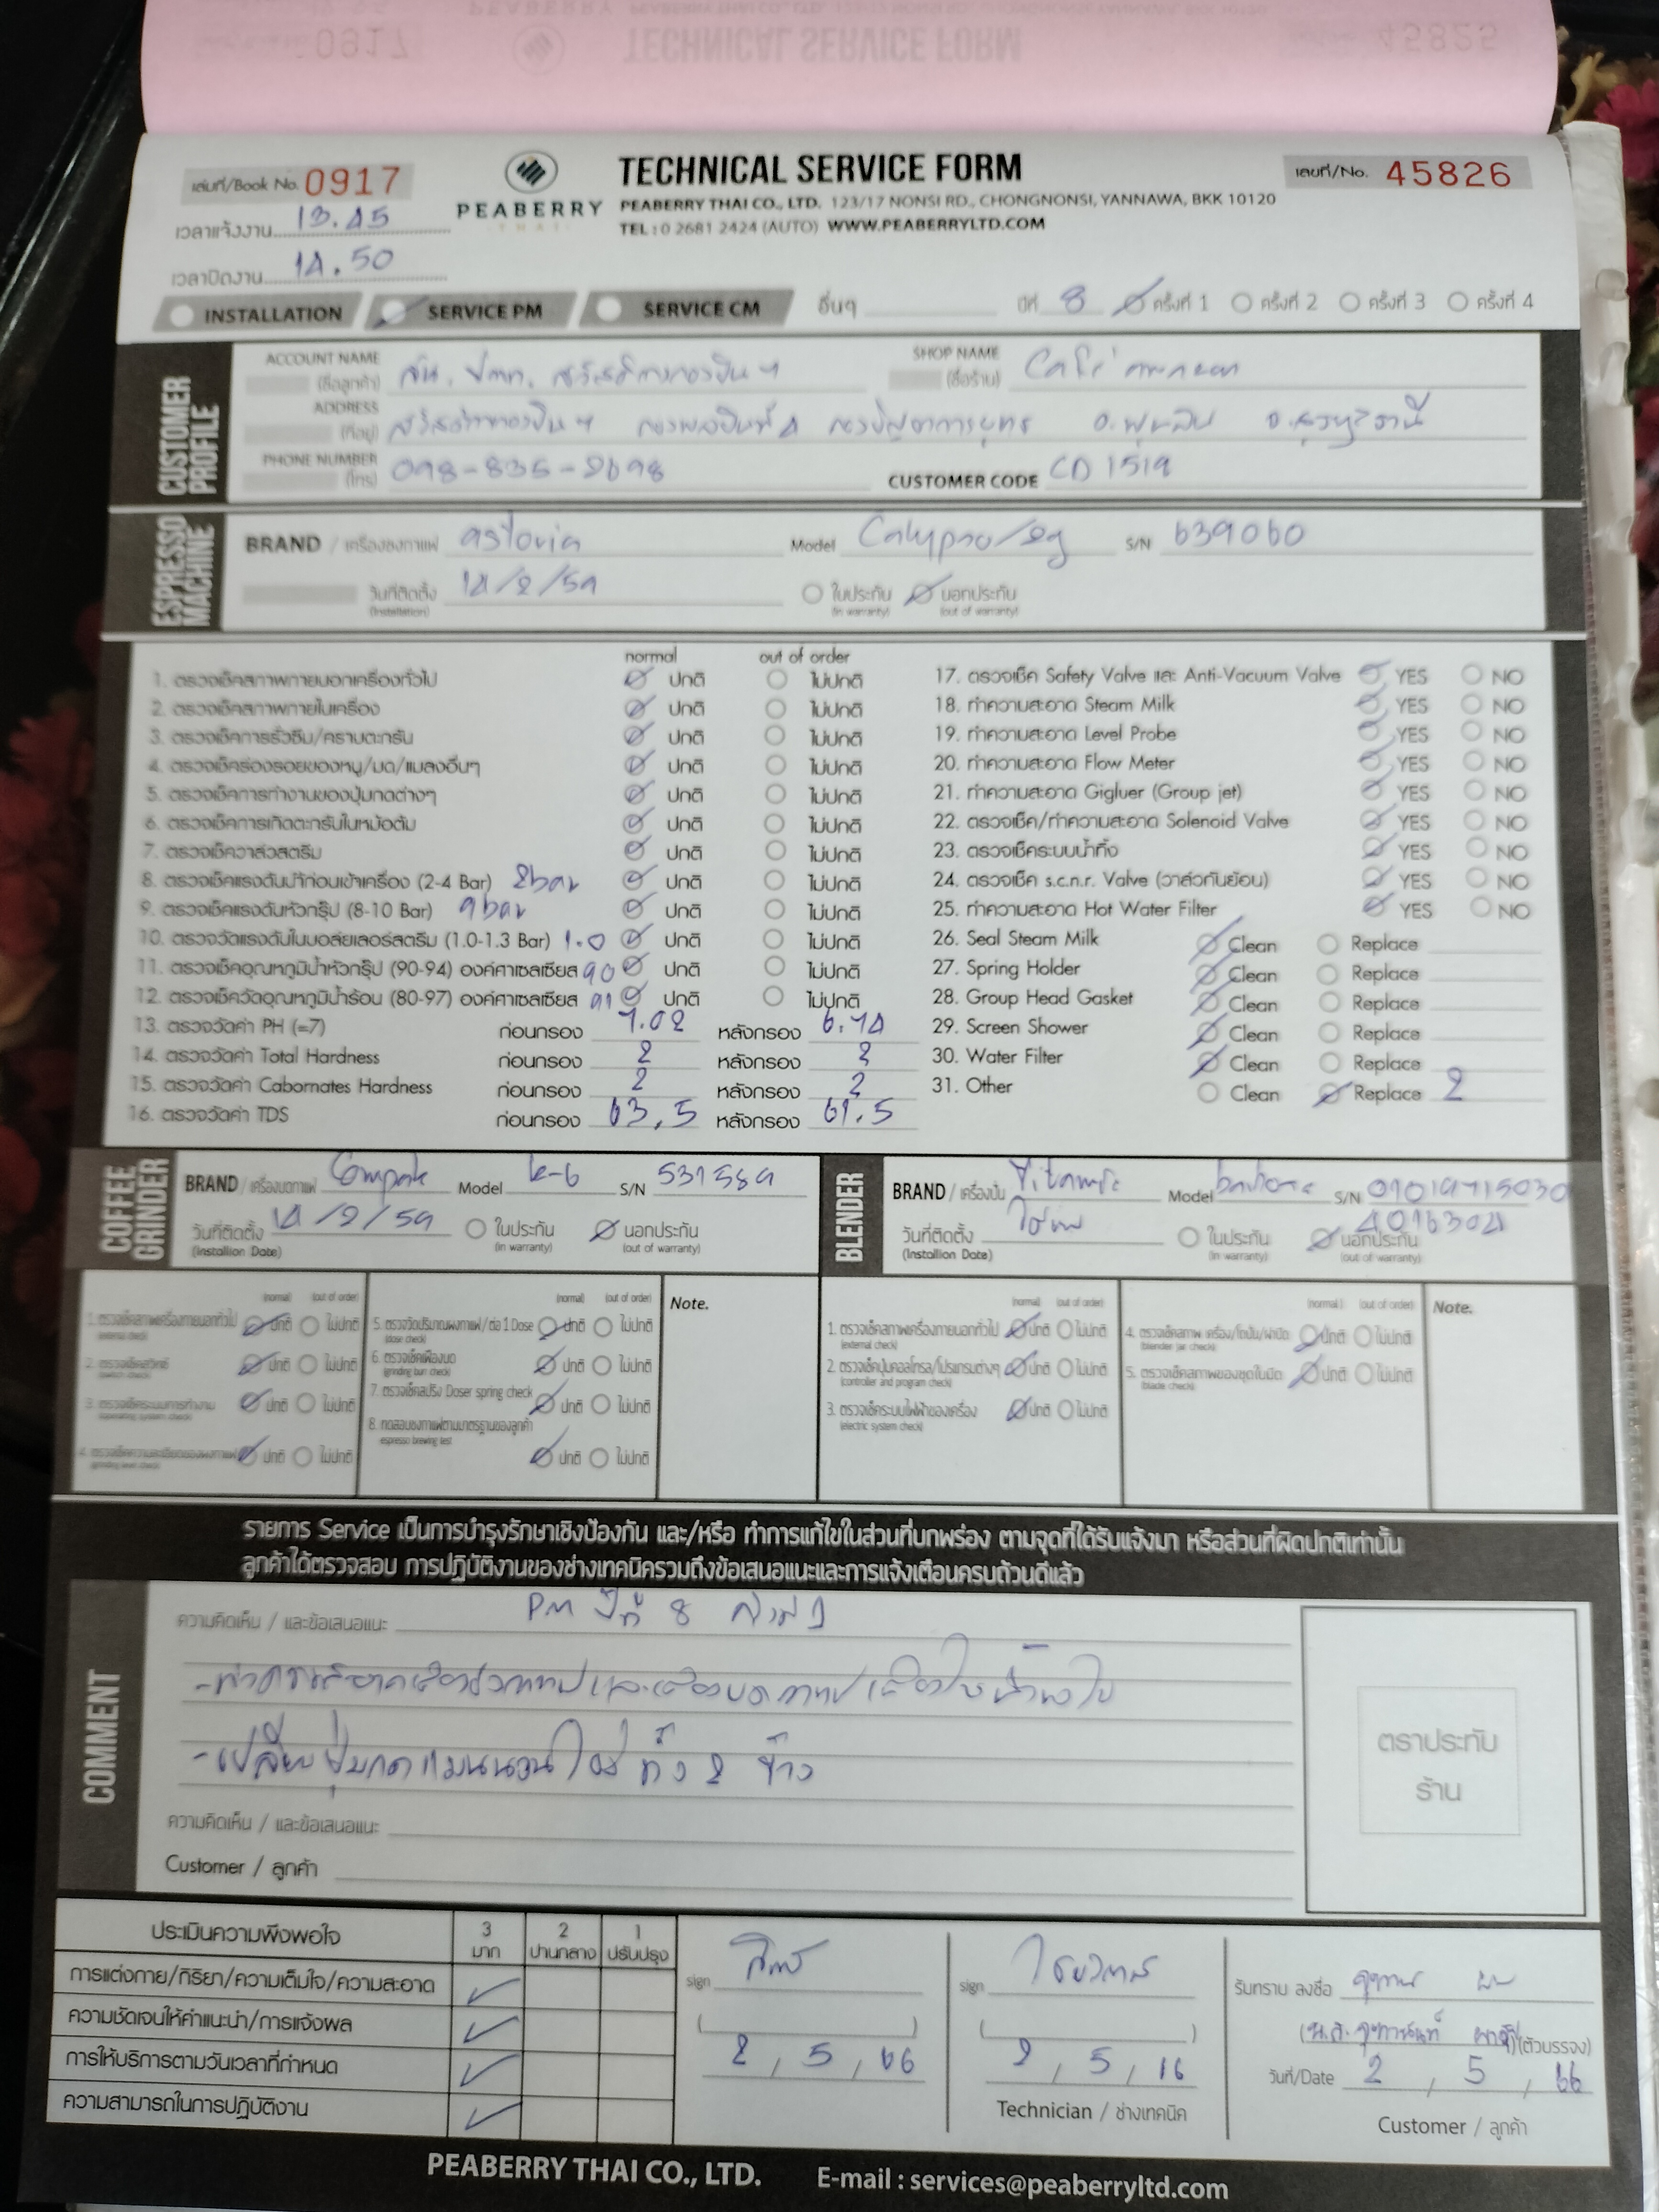 เล่มที่/Book No. 0917
TECHNICAL SERVICE FORM
เลขที่/No. 45826
PEABERRY
THAI
PEABERRY THAI CO., LTD. 123/17 NONSI RD., CHONGNONSI, YANNAWA, BKK 10120
TEL : 0 2681 2424 (AUTO) WWW.PEABERRYLTD.COM
เวลาแจ้งงาน 13.45
เวลาปิดงาน 14.50
INSTALLATION SERVICE PM SERVICE CM อื่นๆ ปีที่ 8 ครั้งที่ 1 ครั้งที่ 2 ครั้งที่ 3 ครั้งที่ 4
CUSTOMER PROFILE
ACCOUNT NAME (ชื่อลูกค้า)
SHOP NAME (ชื่อร้าน)
ADDRESS (ที่อยู่)
PHONE NUMBER (โทร) 098-835-2698 CUSTOMER CODE CD 1519
ESPRESSO MACHINE
BRAND / เครื่องชงกาแฟ astoria Model Calypso/2g S/N 639060
วันที่ติดตั้ง (Installation) 14/2/59 ในประกัน (in warranty) นอกประกัน (out of warranty)
normal out of order
1. ตรวจเช็คสภาพภายนอกเครื่องทั่วไป ปกติ ไม่ปกติ
2. ตรวจเช็คสภาพภายในเครื่อง ปกติ ไม่ปกติ
3. ตรวจเช็คการรั่วซึม/คราบตะกรัน ปกติ ไม่ปกติ
4. ตรวจเช็คร่องรอยของหนู/มด/แมลงอื่นๆ ปกติ ไม่ปกติ
5. ตรวจเช็คการทำงานของปุ่มกดต่างๆ ปกติ ไม่ปกติ
6. ตรวจเช็คการเกิดตะกรันในหม้อต้ม ปกติ ไม่ปกติ
7. ตรวจเช็ควาล์วสตรีม ปกติ ไม่ปกติ
8. ตรวจเช็คแรงดันน้ำก่อนเข้าเครื่อง (2-4 Bar) 2bar ปกติ ไม่ปกติ
9. ตรวจเช็คแรงดันหัวกรุ๊ป (8-10 Bar) 9bar ปกติ ไม่ปกติ
10. ตรวจวัดแรงดันในบอล์ยเลอร์สตรีม (1.0-1.3 Bar) 1.0 ปกติ ไม่ปกติ
11. ตรวจเช็คอุณหภูมิน้ำหัวกรุ๊ป (90-94) องศาเซลเซียส 90 ปกติ ไม่ปกติ
12. ตรวจเช็ควัดอุณหภูมิน้ำร้อน (80-97) องศาเซลเซียส 91 ปกติ ไม่ปกติ
13. ตรวจวัดค่า PH (=7) ก่อนกรอง 7.02 หลังกรอง 6.74
14. ตรวจวัดค่า Total Hardness ก่อนกรอง 2 หลังกรอง 2
15. ตรวจวัดค่า Cabornates Hardness ก่อนกรอง 2 หลังกรอง 2
16. ตรวจวัดค่า TDS ก่อนกรอง 63.5 หลังกรอง 61.5
17. ตรวจเช็ค Safety Valve และ Anti-Vacuum Valve YES NO
18. ทำความสะอาด Steam Milk YES NO
19. ทำความสะอาด Level Probe YES NO
20. ทำความสะอาด Flow Meter YES NO
21. ทำความสะอาด Gigluer (Group jet) YES NO
22. ตรวจเช็ค/ทำความสะอาด Solenoid Valve YES NO
23. ตรวจเช็คระบบน้ำทิ้ง YES NO
24. ตรวจเช็ค s.c.n.r. Valve (วาล์วกันย้อน) YES NO
25. ทำความสะอาด Hot Water Filter YES NO
26. Seal Steam Milk Clean Replace
27. Spring Holder Clean Replace
28. Group Head Gasket Clean Replace
29. Screen Shower Clean Replace
30. Water Filter Clean Replace
31. Other Clean Replace 2
COFFEE GRINDER
BRAND / เครื่องบดกาแฟ Compak Model k-6 S/N 531589
วันที่ติดตั้ง (Installion Date) 14/2/59 ในประกัน (in warranty) นอกประกัน (out of warranty)
BLENDER
BRAND / เครื่องปั่น Vitamix Model S/N 01019715030
4016304
วันที่ติดตั้ง (Installion Date) ในประกัน (in warranty) นอกประกัน (out of warranty)
(normal) (out of order)
1. ตรวจเช็คสภาพเครื่องภายนอกทั่วไป (external check) ปกติ ไม่ปกติ
2. ตรวจเช็คสวิทซ์ (switch check) ปกติ ไม่ปกติ
3. ตรวจเช็คระบบการทำงาน (operating system check) ปกติ ไม่ปกติ
4. ตรวจเช็คความละเอียดของผงกาแฟ (grinding level check) ปกติ ไม่ปกติ
(normal) (out of order)
5. ตรวจวัดปริมาณผงกาแฟ/ต่อ 1 Dose (dose check) ปกติ ไม่ปกติ
6. ตรวจเช็คเฟืองบด (grinding burr check) ปกติ ไม่ปกติ
7. ตรวจเช็คสปริง Doser spring check ปกติ ไม่ปกติ
8. ทดสอบชงกาแฟตามมาตรฐานของลูกค้า espresso brewing test ปกติ ไม่ปกติ
Note.
(normal) (out of order)
1. ตรวจเช็คสภาพเครื่องภายนอกทั่วไป (external check) ปกติ ไม่ปกติ
2. ตรวจเช็คปุ่มคอลโทรล/โปรแกรมต่างๆ (controller and program check) ปกติ ไม่ปกติ
3. ตรวจเช็คระบบไฟฟ้าของเครื่อง (electric system check) ปกติ ไม่ปกติ
(normal) (out of order)
4. ตรวจเช็คสภาพ เครื่อง/โถปั่น/ฝาปิด (blender jar check) ปกติ ไม่ปกติ
5. ตรวจเช็คสภาพของชุดใบมีด (blade check) ปกติ ไม่ปกติ
Note.
รายการ Service เป็นการบำรุงรักษาเชิงป้องกัน และ/หรือ ทำการแก้ไขในส่วนที่บกพร่อง ตามจุดที่ได้รับแจ้งมา หรือส่วนที่ผิดปกติเท่านั้น
ลูกค้าได้ตรวจสอบ การปฏิบัติงานของช่างเทคนิครวมถึงข้อเสนอแนะและการแจ้งเตือนครบถ้วนดีแล้ว
COMMENT
ความคิดเห็น / และข้อเสนอแนะ PM ปีที่ 8 ครั้งที่ 1
-เปลี่ยนปุ่มกดแมนนวลใหม่ ทั้ง 2 ข้าง
ความคิดเห็น / และข้อเสนอแนะ
Customer / ลูกค้า
ตราประทับ
ร้าน
ประเมินความพึงพอใจ 3 มาก 2 ปานกลาง 1 ปรับปรุง
การแต่งกาย/กิริยา/ความเต็มใจ/ความสะอาด
ความชัดเจนให้คำแนะนำ/การแจ้งผล
การให้บริการตามวันเวลาที่กำหนด
ความสามารถในการปฏิบัติงาน
sign
2 , 5 , 66
sign
2 , 5 , 66
Technician / ช่างเทคนิค
รับทราบ ลงชื่อ
(ตัวบรรจง)
วันที่/Date 2 , 5 , 66
Customer / ลูกค้า
PEABERRY THAI CO., LTD. E-mail : services@peaberryltd.com